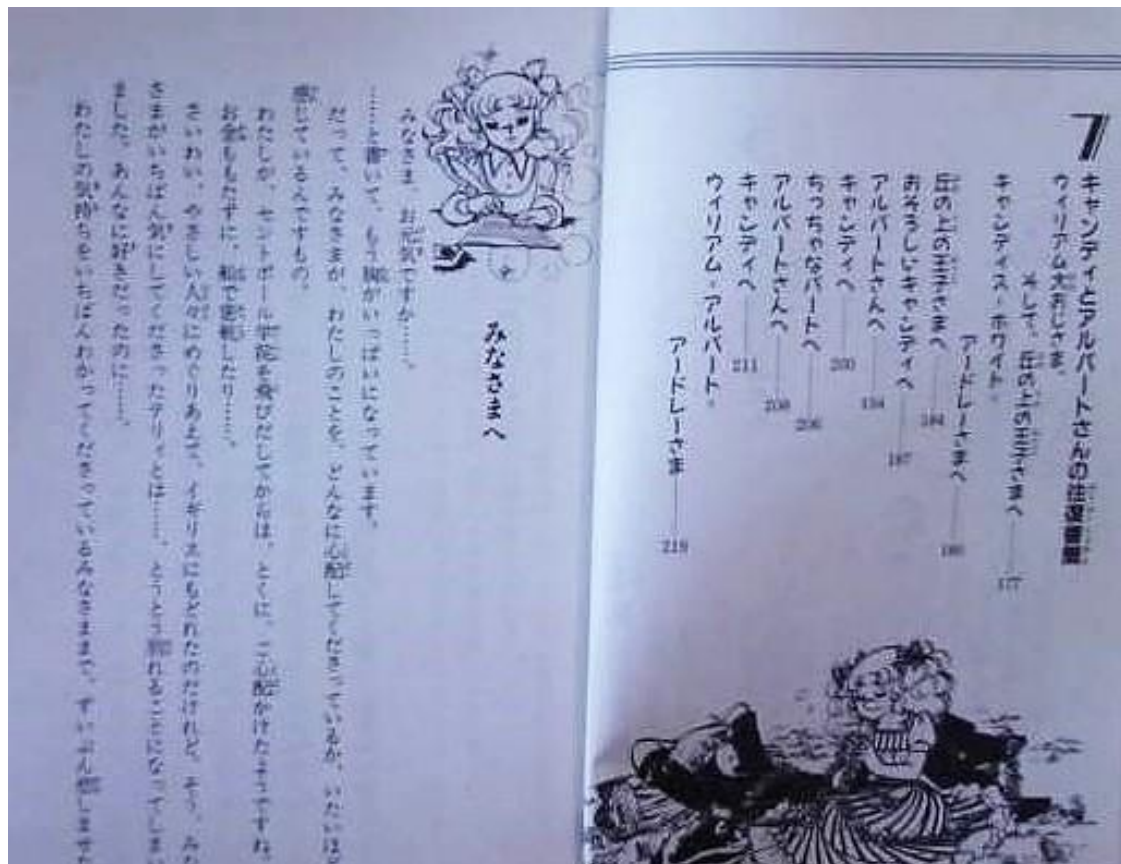 7
キャンディとアルバートさんの往復書簡
ウィリアム大おじさま。
そして、丘の上の王子さまへ
177
キャンディス・ホワイト・
アードレーさまへ
180
丘の上の王子さまへ
184
おそろしいキャンディへ
187
アルバートさんへ
194
キャンディへ
200
ちっちゃなバートへ
206
アルバートさんへ
208
キャンディへ
211
ウィリアム・アルバート・
アードレーさま
219
みなさまへ
みなさま、お元気ですか……。
……と書いて、もう胸がいっぱいになっています。
だって、みなさまが、わたしのことを、どんなに心配してくださっているか、いたいほど
感じているんですもの。
わたしが、セントポール学院を飛びだしてからは、とくに、ご心配かけたそうですね。
お金ももたずに、船で密航したり……。
さいわい、やさしい人々にめぐりあえて、イギリスにもどれたのだけれど、そう、みな
さまがいちばん気にしてくださったテリィとは……、とうとう別れることになってしまい
ました。あんなに好きだったのに……。
わたしの気持ちをいちばんわかってくださっているみなさままで、ずいぶん悲しませた